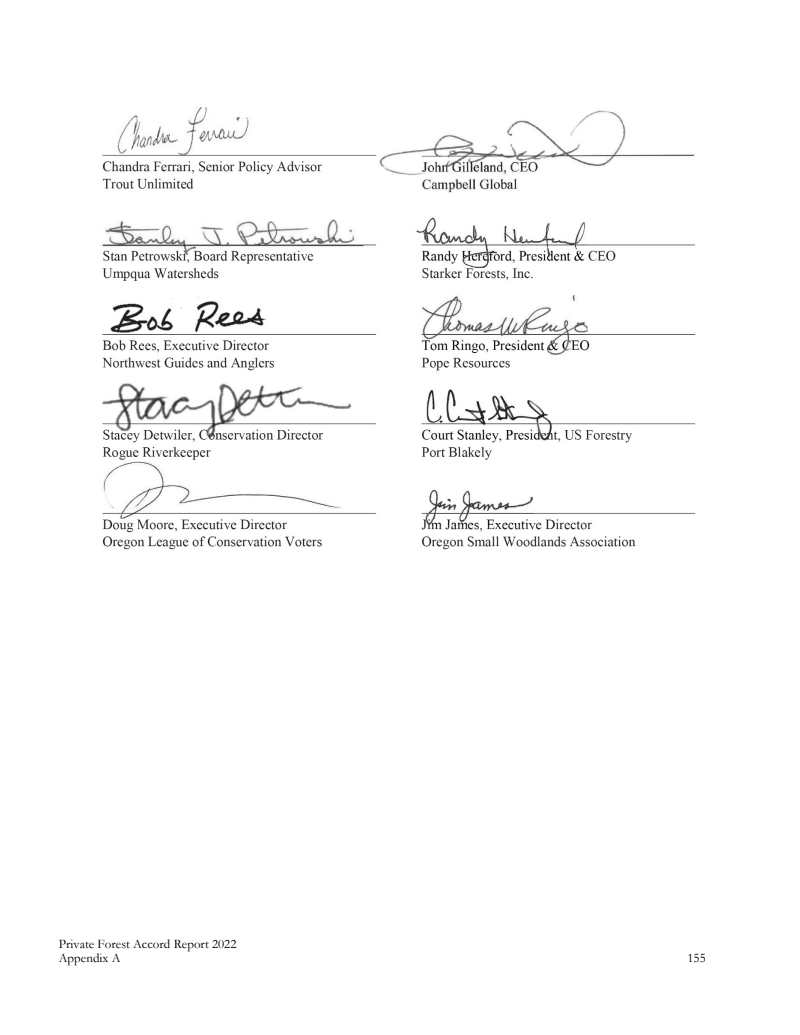 Chandra Ferrari
Chandra Ferrari, Senior Policy Advisor
Trout Unlimited
Stanley J. Petrowski
Stan Petrowski, Board Representative
Umpqua Watersheds
Bob Rees
Bob Rees, Executive Director
Northwest Guides and Anglers
Stacey Detwiler, Conservation Director
Rogue Riverkeeper
Doug Moore, Executive Director
Oregon League of Conservation Voters
John Gilleland, CEO
Campbell Global
Randy
Randy Hereford, President & CEO
Starker Forests, Inc.
Thomas M Ringo
Tom Ringo, President & CEO
Pope Resources
Court Stanley, President, US Forestry
Port Blakely
Jim James
Jim James, Executive Director
Oregon Small Woodlands Association
Private Forest Accord Report 2022
Appendix A
155